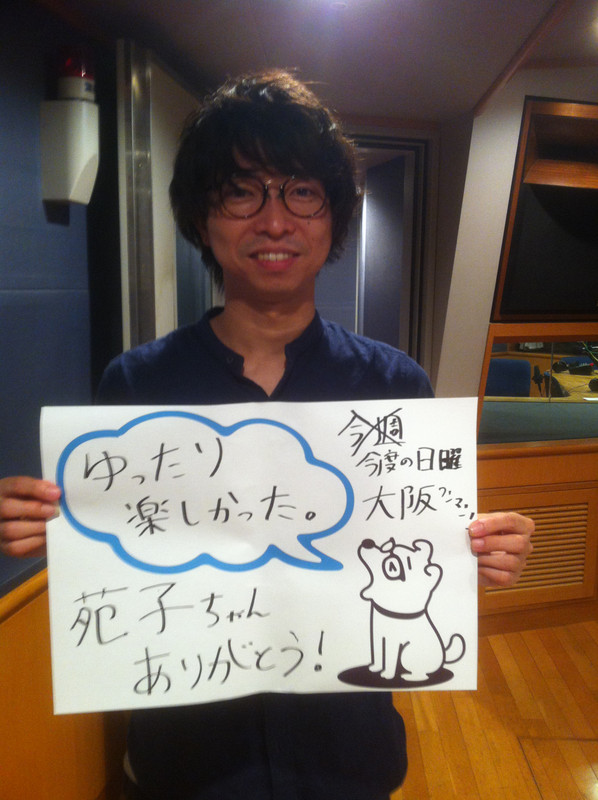 ゆったり
楽しかった。
今週
今度の日曜
大阪ワンマン!
苑子ちゃん
ありがとう!